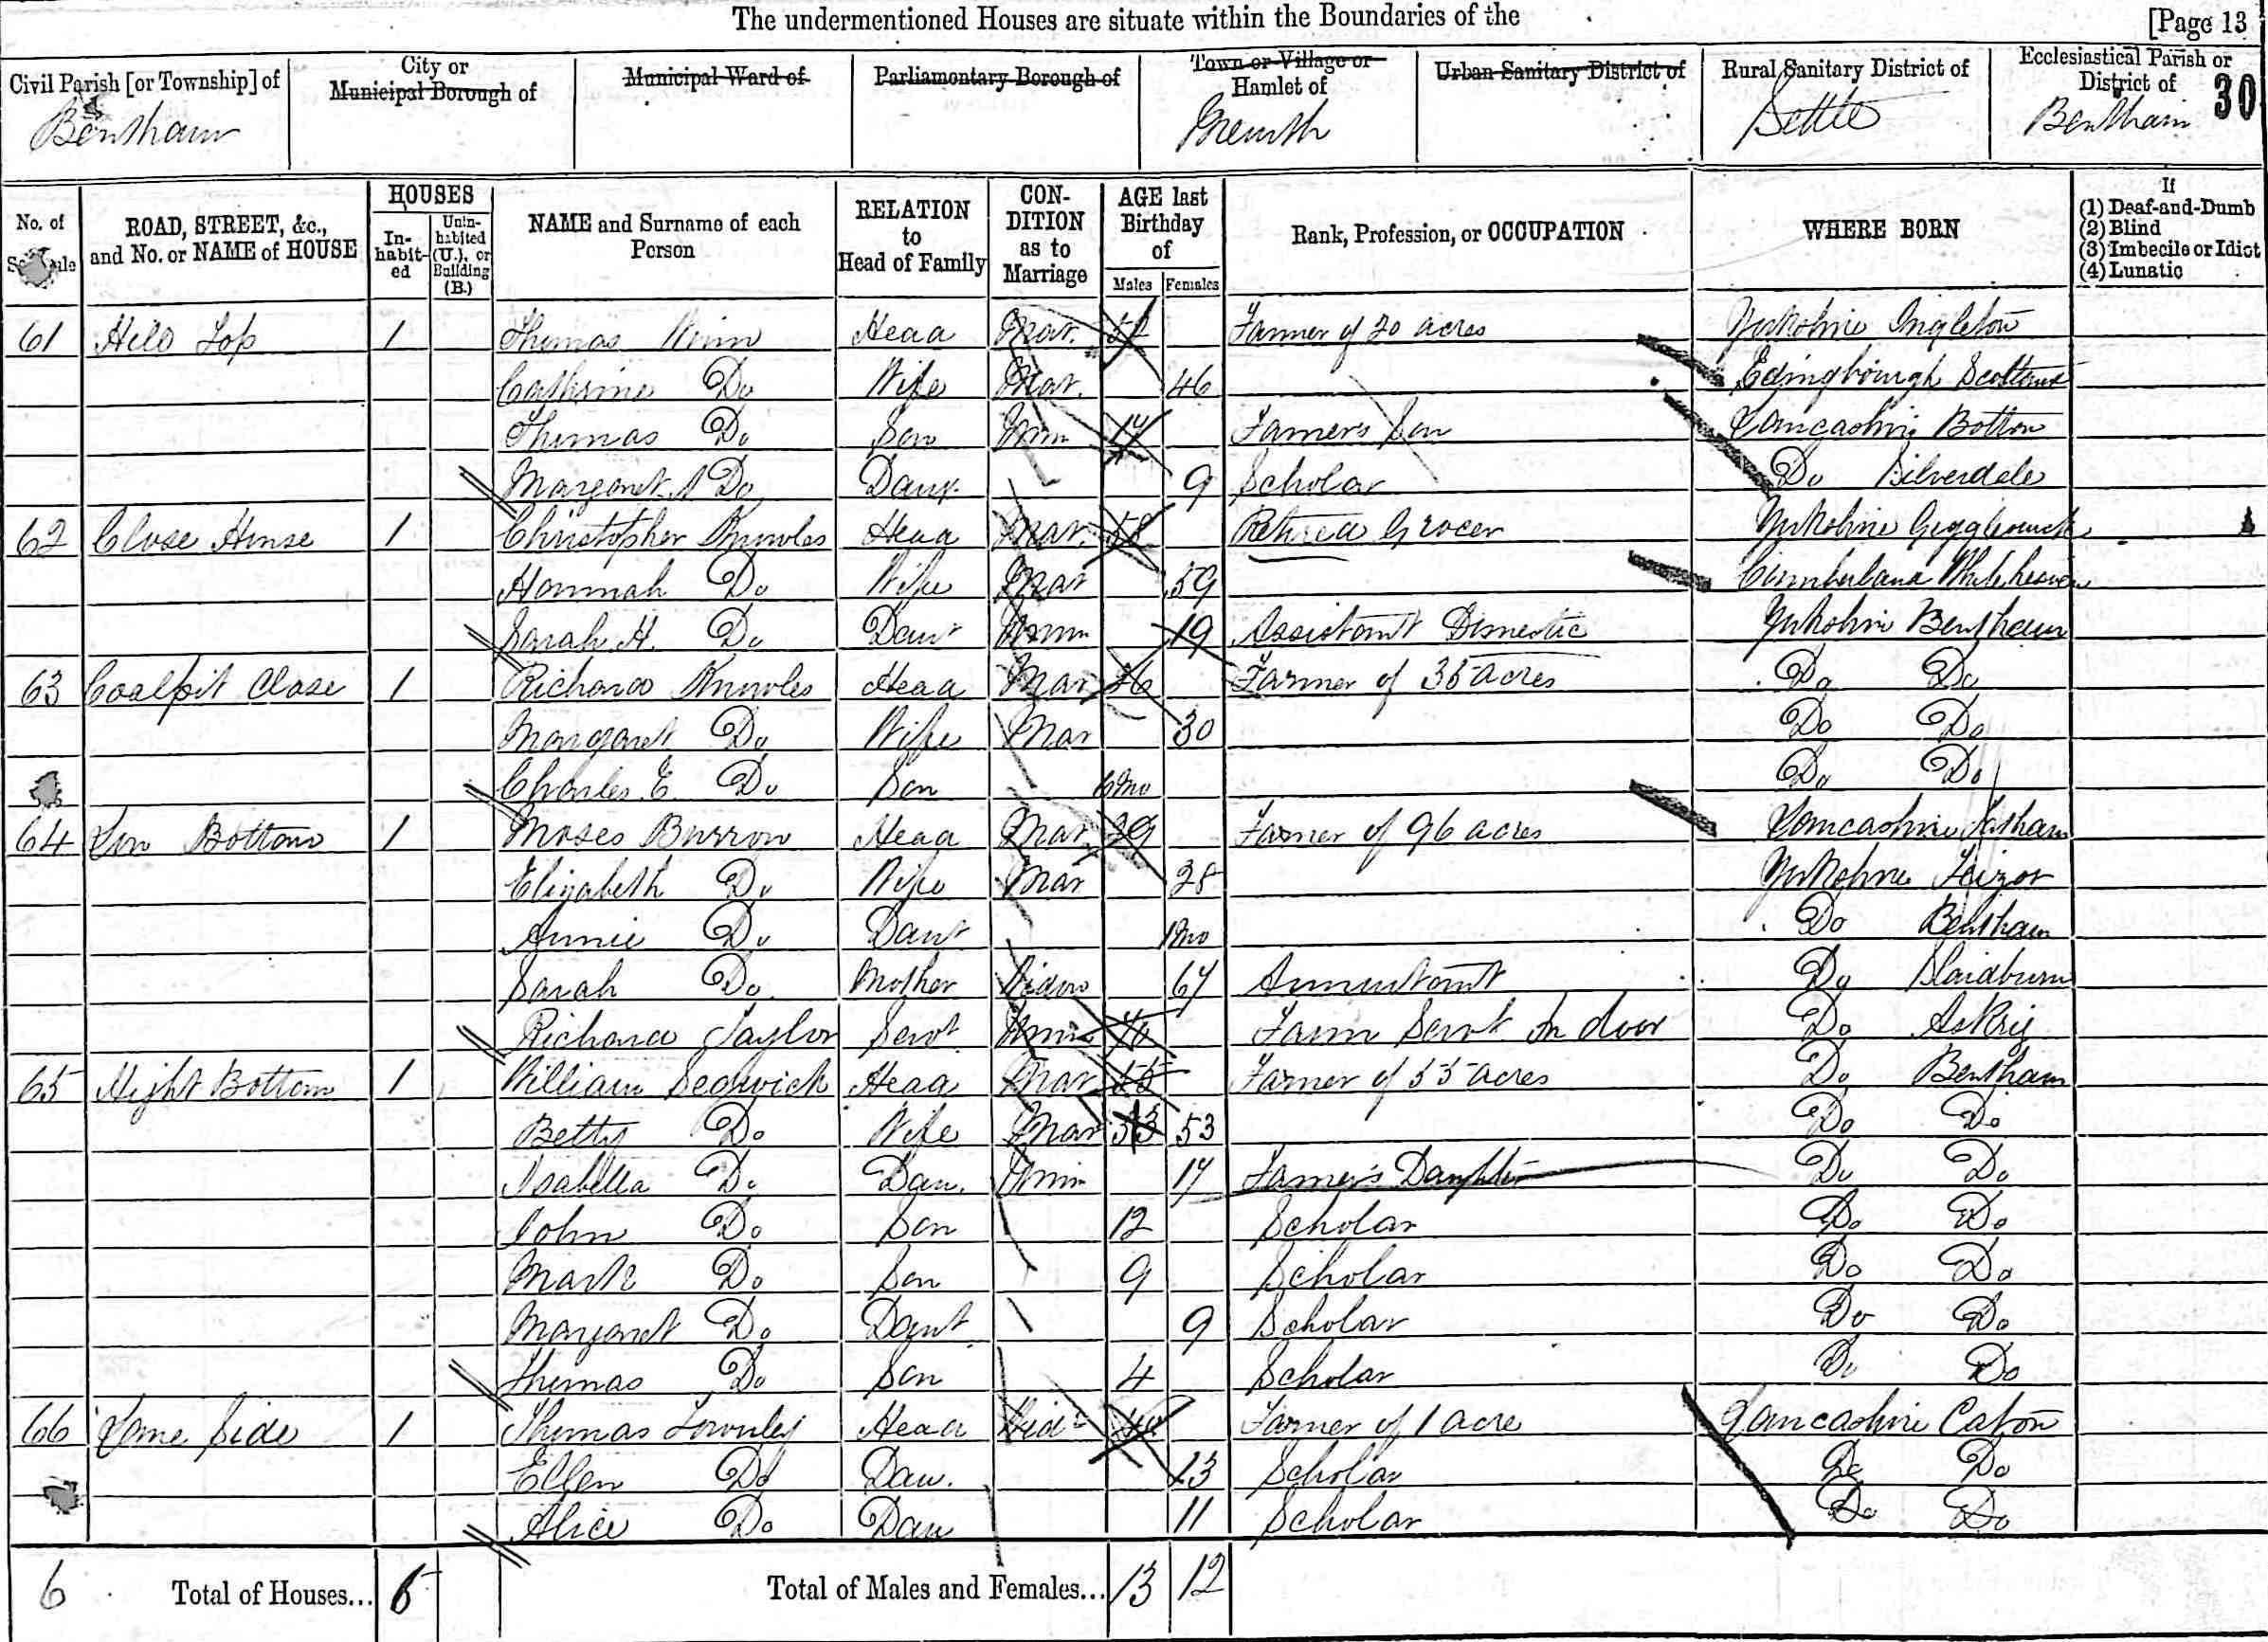 The undermentioned Houses are situate within the Boundaries of the [Page 13
Civil Parish [or Township] of City or Municipal Borough of Municipal Ward of Parliamentary Borough of Town or Village or Hamlet of Urban Sanitary District of Rural Sanitary District of Ecclesiastical Parish or District of 30
Bentham Settle Bentham
No. of ROAD, STREET, &c., and No. or NAME of HOUSE HOUSES In-habit-ed Unin-habited (U.), or Building (B.) NAME and Surname of each Person RELATION to Head of Family CON-DITION as to Marriage AGE last Birthday of Males Females Rank, Profession, or OCCUPATION WHERE BORN If (1) Deaf-and-Dumb (2) Blind (3) Imbecile or Idiot (4) Lunatic
61 Hill Top 1 Thomas Head Mar. Farmer of 20 acres Yorkshire Ingleton
Cathrine Do Wife Mar. 46 Edingbourgh Scotland
Thomas Do Son Unm Famers Son Lancashire Botton
Margaret A Do Daur 9 Scholar Do Silverdale
62 Close House 1 Christopher Knowles Head Mar. 58 Retired Grocer Yorkshire Giggleswick
Hannah Do Wife Mar 59 Cumberland Whitehaven
Sarah H. Do Daur Unm 19 Assistant Domestic Yorkshire Bentham
63 Coalpit Close 1 Richard Knowles Head Mar 26 Farmer of 35 acres Do Do
Margaret Do Wife Mar 30 Do Do
Charles E. Do Son 6mo Do Do
64 Bottom 1 Moses Burrow Head Mar 39 Farmer of 96 acres Lancashire Tatham
Elizabeth Do Wife Mar 28 Yorkshire Feizor
Annie Do Daur 1mo Do Bentham
Sarah Do. Mother Widow 67 Annuitant Do Slaidburn
Richard Taylor Servt. Unm 40 Farm Servt In door Do Askrig
65 Hight Bottom 1 William Sedgwick Head Mar 55 Farmer of 55 acres Do Bentham
Betty Do Wife Mar 53 53 Do Do
Isabella Do Dau. Unm 17 Famers Daughter Do Do
John Do Son 12 Scholar Do Do
Mark Do Son 9 Scholar Do Do
Margaret Do Daut 9 Scholar Do Do
Thomas Do Son 4 Scholar Do Do
66 Lane Side 1 Thomas Townley Head Widr Farmer of 1 acre Lancashire Caton
Ellen Do Dau. 13 Scholar Do Do
Alice Do Dau 11 Scholar Do Do
6 Total of Houses... 6 Total of Males and Females... 13 12